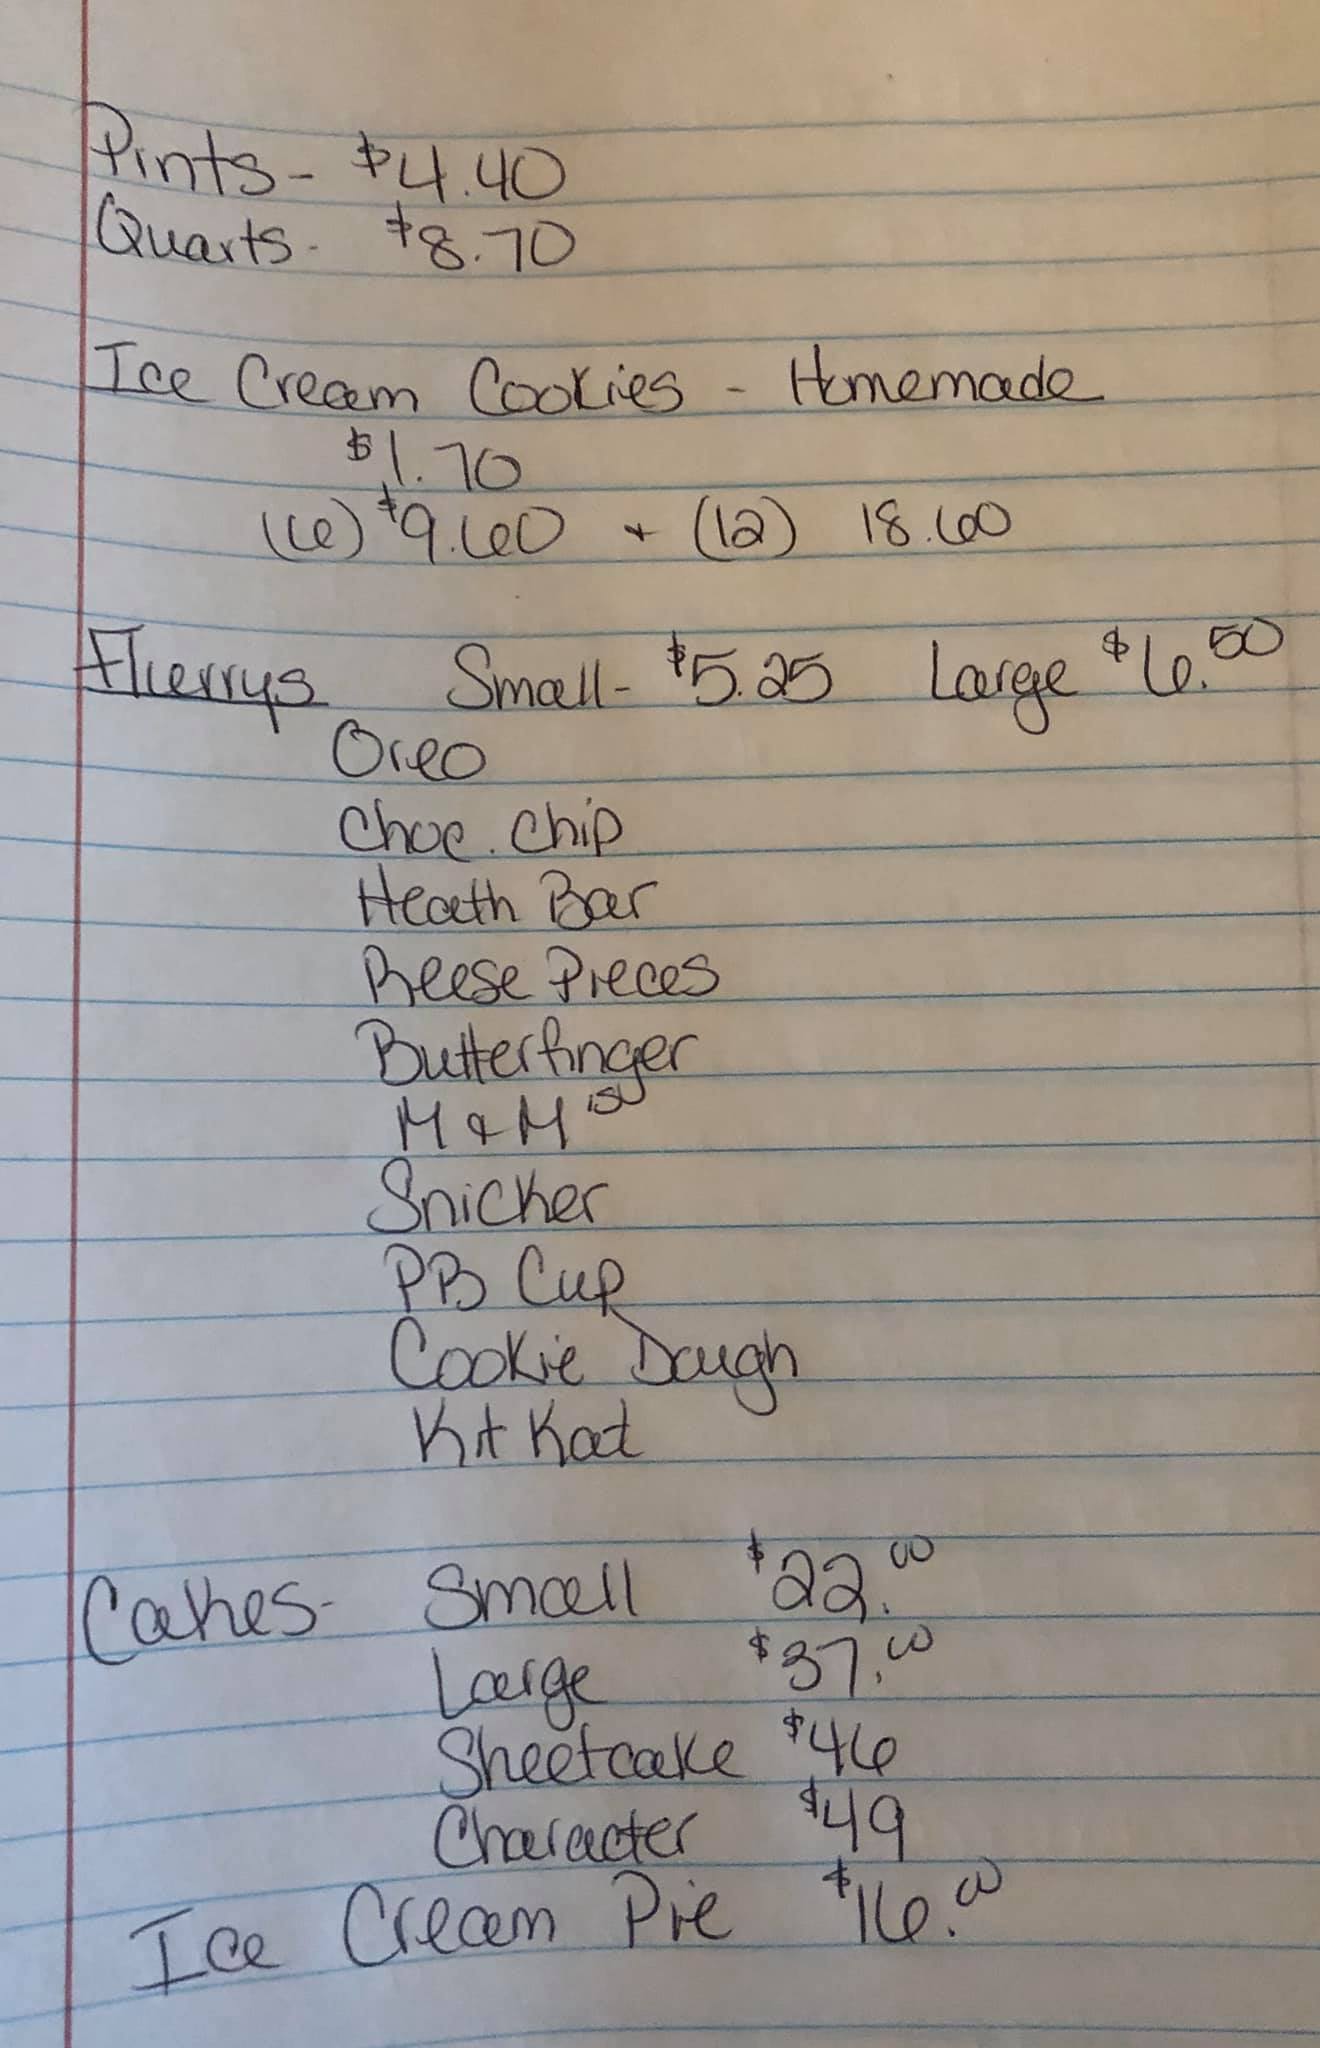 Pints - $4.40
Quarts - $8.70
Ice Cream Cookies - Homemade
$1.70
(6) $9.60 + (12) 18.60
Flurrys Small - $5.25 Large $6.50
Oreo
Choc. Chip
Heath Bar
Reese Pieces
Butterfinger
M & M's
Snicker
PB Cup
Cookie Dough
Kit Kat
Cakes - Small $22.00
Large $37.00
Sheetcake $46
Character $49
Ice Cream Pie $16.00